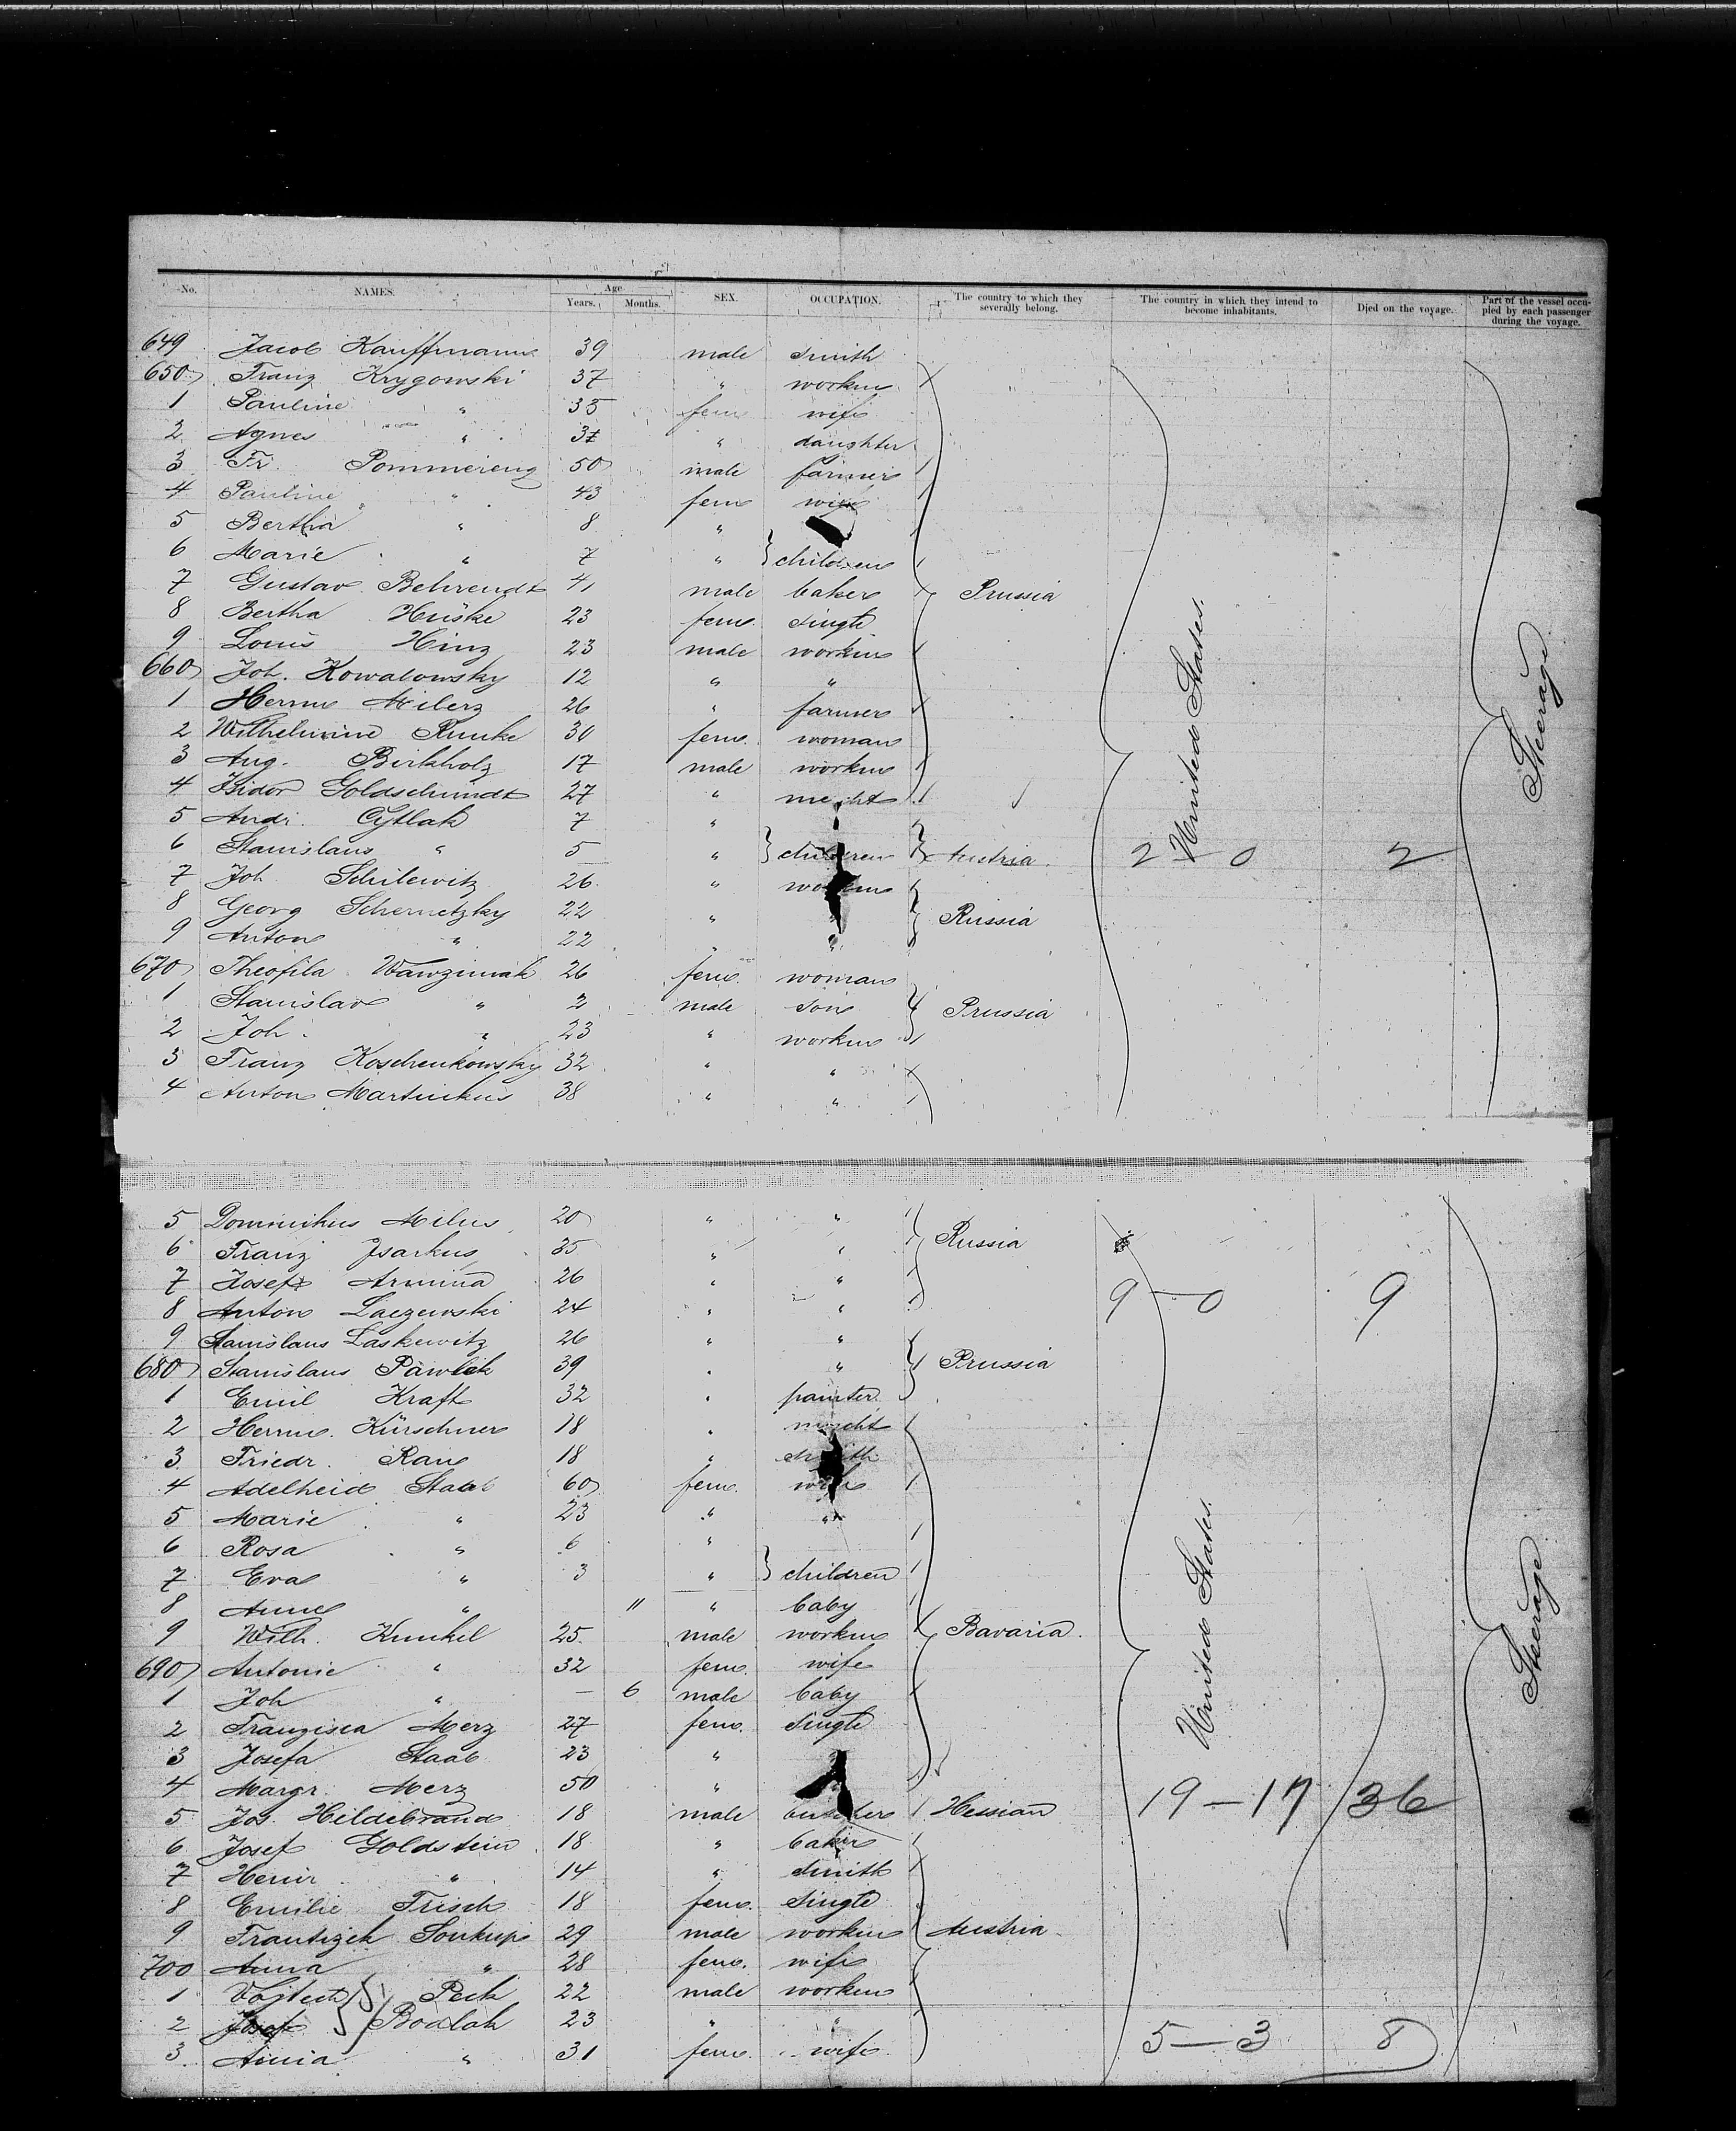 No. NAMES. Age Years. Months. SEX. OCCUPATION. The country to which they severally belong. The country in which they intend to become inhabitants. Died on the voyage. Part of the vessel occupied by each passenger during the voyage.
649 Jacob Kauffmann 39 male smith
650 Franz Krygowski 37 " workm
1 Pauline " 35 fem wife
2 Agnes " " daughter
3 Fr. Pommereng 50 male farmer
4 Pauline " 43 fem wife
5 Bertha " 8 "
6 Marie " 7 " } children
7 Gustav Behrendt 41 male baker Prussia
8 Bertha Hüske 23 fem. single
9 Louis Hinz 23 male workm
660 Joh. Kowalowsky 12 " "
1 Herm Milerz 26 " farmer
2 Wilhelmine Rumke 30 fem. woman
3 Aug. Birkholz 17 male workm
4 Isidor Goldschmidt 27 " mercht
5 Andr. Cytlak 7 "
6 Stanislaus " 5 " } children Austria 2 – 0 2
7 Joh Schilewitz 26 " workm
8 Georg Schernetzky 22 " " Russia
9 Anton " 22 " "
670 Theofila Wawziniak 26 fem. woman
1 Stanislav " 2 male son Prussia
2 Joh. " 23 " workm
3 Franz Koschenkowsky 32 " "
4 Anton Martinkus 38 " "
United States.
Steerage
5 Dominikus Milus 20 " "
6 Franz Isarkus 35 " " Russia
7 Josef Armina 26 " "
8 Anton Laczewski 24 " " 9 – 0 9
9 Stanislaus Laskewitz 26 " "
680 Stanislaus Pawlik 39 " " Prussia
1 Emil Kraft 32 " painter
2 Herm. Kürschner 18 " mercht
3 Friedr. Rau 18 " smith
4 Adelheid Staab 60 fem. wife
5 Marie " 23 " "
6 Rosa " 6 "
7 Eva " 3 " } children
8 Anna " 11 " baby
9 Wilh. Kunkel 25 male workm Bavaria.
690 Antonie " 32 fem. wife
1 Joh " – 6 male baby
2 Franzisca Merz 27 fem. single
3 Josefa Staab 23 "
4 Margr. Merz 50 "
5 Jos. Hildebrand 18 male butcher Hessian 19 – 17 36
6 Josef Goldstein 18 " baker
7 Heinr. " 14 " smith
8 Emilie Frisch 18 fem. single
9 Frantizek Soukup 29 male workm Austria
700 Anna " 28 fem. wife
1 Vojtech Peck 22 male workm
2 Josef Boalak 23 " "
3 Anna " 31 fem. wife 5 – 3 8
United States.
Steerage